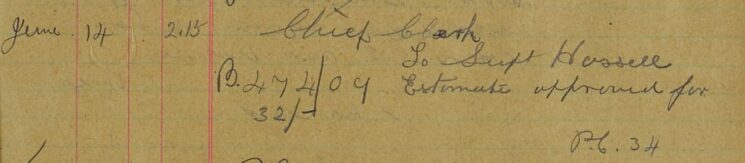 June 14 2.15 Chief Clerk
To Supt Hossell
B. 474/09 Estimate approved for
32/-
P.C. 34